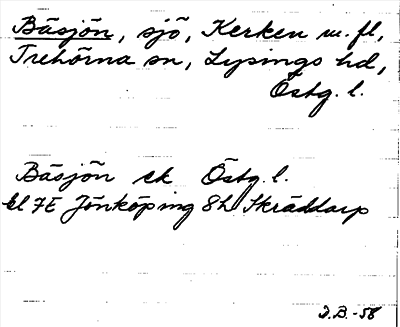 Båsjön, sjö, Kerken m.fl,
Trehörna sn, Lysings hd,
Östg. l.
Båsjön ek Östg. l.
bl 7E Jönköping 8h Skräddarp
D.B.-58